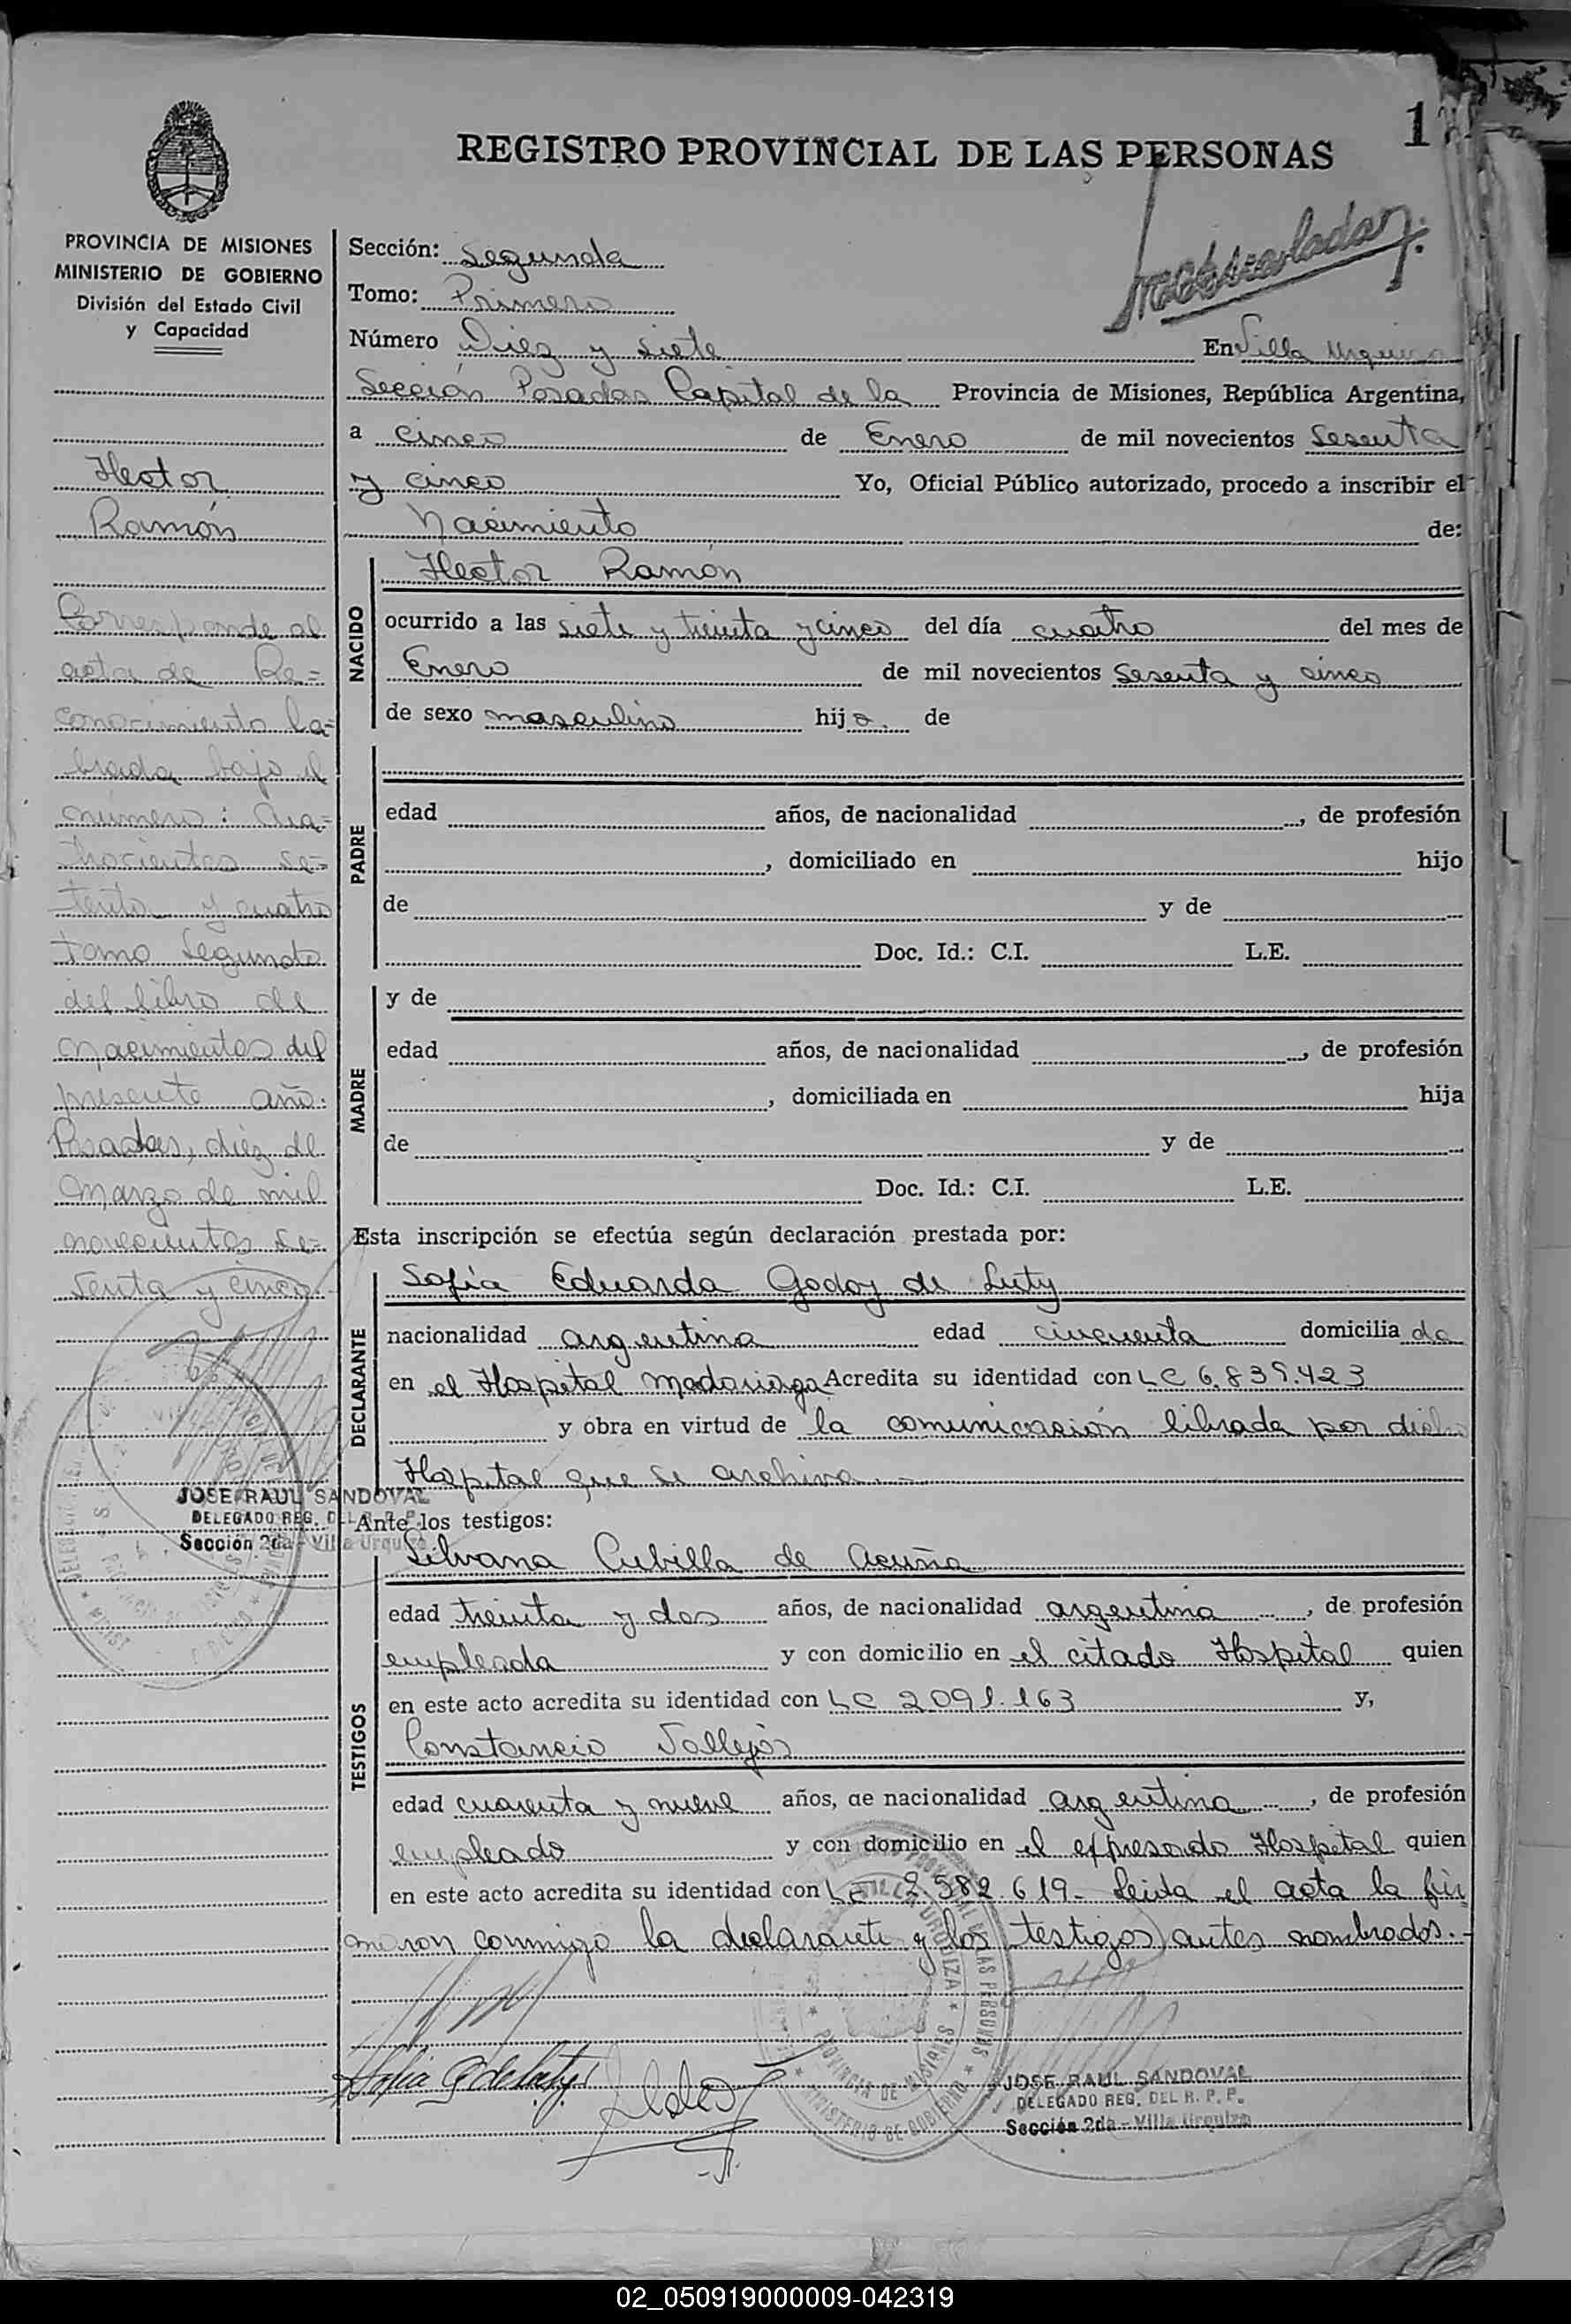 REGISTRO PROVINCIAL DE LAS PERSONAS
1
PROVINCIA DE MISIONES
MINISTERIO DE GOBIERNO
División del Estado Civil
y Capacidad
Hector
Ramón
Corresponde al
acta de Re=
conocimiento la=
brada bajo el
número: Cua=
trocientos se=
tenta y cuatro
tomo Segundo
del libro de
nacimientos del
presente año.
Posadas, diez de
Marzo de mil
novecientos se=
senta y cinco.
JOSE RAUL SANDOVAL
DELEGADO REG. DEL R. P. P.
Sección 2da - Villa Urquiza
Sección: Segunda
Tomo: Primero
Número Diez y siete En Villa Urquiza
Sección Posadas Capital de la Provincia de Misiones, República Argentina,
a cinco de Enero de mil novecientos Sesenta
y cinco Yo, Oficial Público autorizado, procedo a inscribir el
Nacimiento de:
NACIDO
Hector Ramón
ocurrido a las siete y treinta y cinco del día cuatro del mes de
Enero de mil novecientos Sesenta y cinco
de sexo masculino hijo. de
PADRE
edad años, de nacionalidad , de profesión
, domiciliado en hijo
de y de
Doc. Id.: C.I. L.E.
MADRE
y de
edad años, de nacionalidad , de profesión
, domiciliada en hija
de y de
Doc. Id.: C.I. L.E.
Esta inscripción se efectúa según declaración prestada por:
DECLARANTE
Sofia Eduarda Godoy de Luty
nacionalidad argentina edad cincuenta domicilia da
en el Hospital Madariaga Acredita su identidad con LC 6.839.423
y obra en virtud de la comunicasión librada por dicho
Hospital que se archiva.
Ante los testigos:
TESTIGOS
Silvana Cubilla de Acuña
edad treinta y dos años, de nacionalidad argentina, de profesión
empleada y con domicilio en el citado Hospital quien
en este acto acredita su identidad con LC 2.091.163 y,
Constancio Vallejos
edad cuarenta y nueve años, de nacionalidad argentina, de profesión
empleado y con domicilio en el expresado Hospital quien
en este acto acredita su identidad con LE 2.582.619.- Leida el acta la fir
maron conmigo la declarante y los testigos antes nombrados.-
Sofia G de Luty
JOSE RAUL SANDOVAL
DELEGADO REG. DEL R. P. P.
Sección 2da - Villa Urquiza
02_050919000009-042319